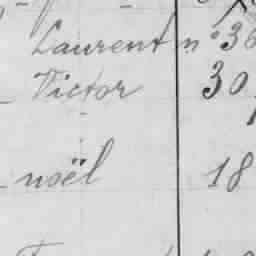 Laurent n° 36
Victor 30
noël 18